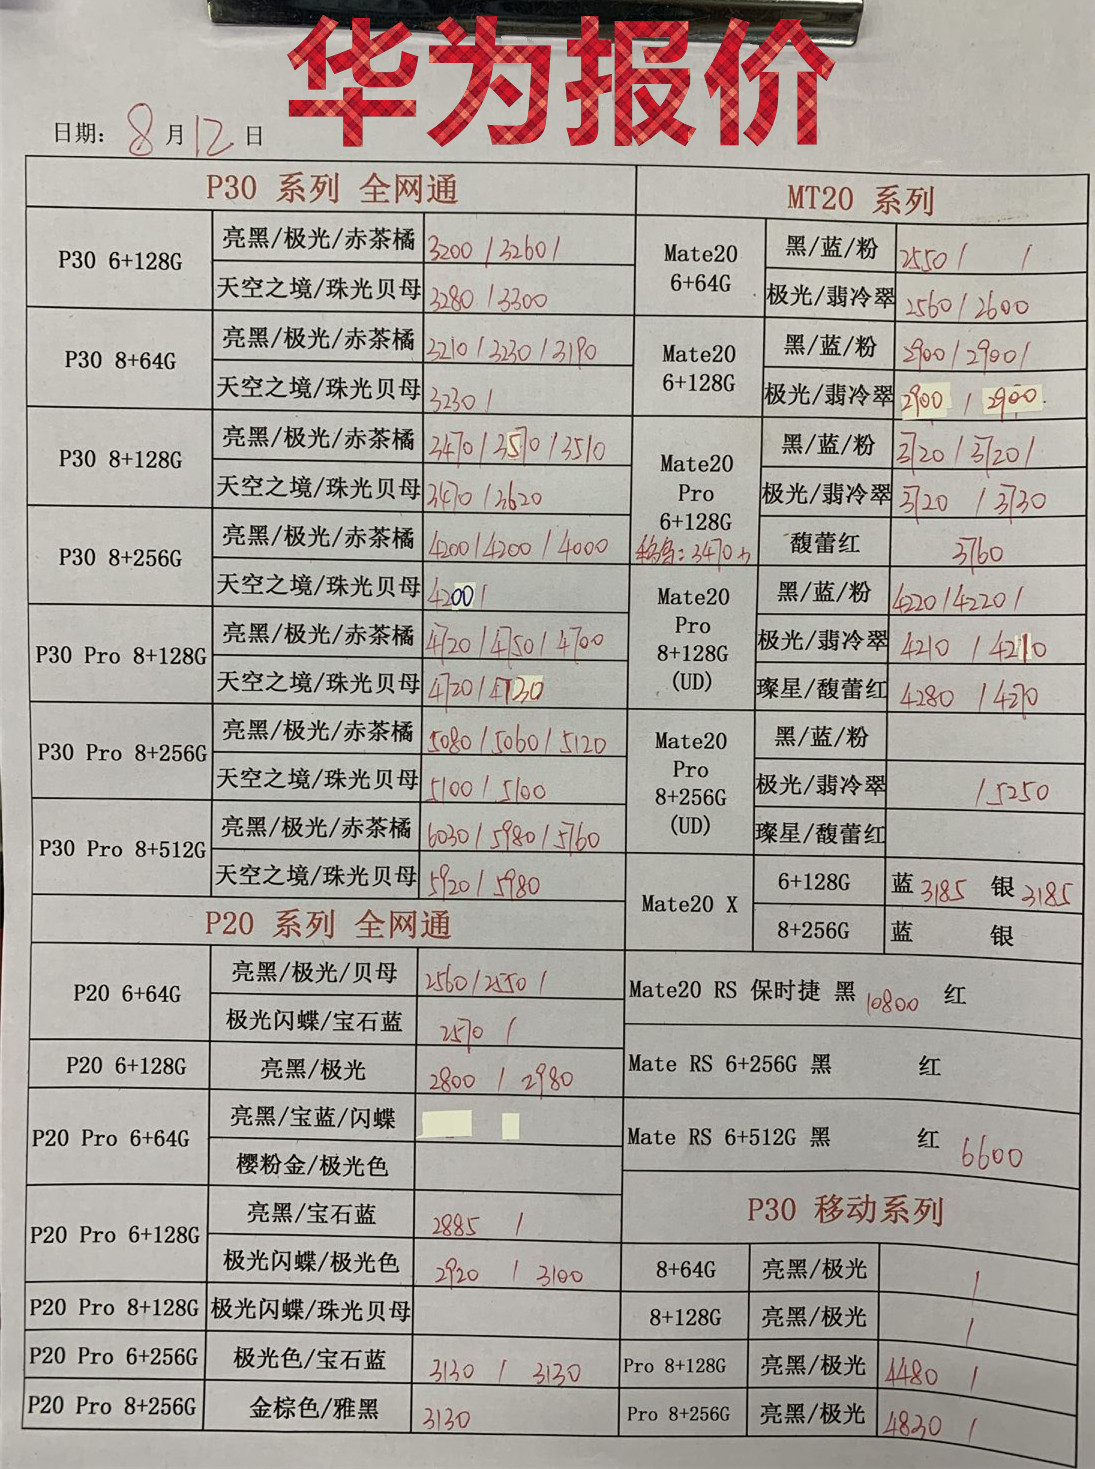 华为报价
日期: 8 月 12 日
P30 系列 全网通
P30 6+128G
亮黑/极光/赤茶橘 3200 / 3260 /
天空之境/珠光贝母 3280 / 3300
P30 8+64G
亮黑/极光/赤茶橘 3210 / 3230 / 3190
天空之境/珠光贝母 3230 /
P30 8+128G
亮黑/极光/赤茶橘 3470 / 3570 / 3510
天空之境/珠光贝母 3470 / 3620
P30 8+256G
亮黑/极光/赤茶橘 4200 / 4200 / 4000
天空之境/珠光贝母 4200 /
P30 Pro 8+128G
亮黑/极光/赤茶橘 4720 / 4750 / 4700
天空之境/珠光贝母 4720 / 4730
P30 Pro 8+256G
亮黑/极光/赤茶橘 5080 / 5060 / 5120
天空之境/珠光贝母 5100 / 5100
P30 Pro 8+512G
亮黑/极光/赤茶橘 6030 / 5980 / 5760
天空之境/珠光贝母 5920 / 5980
P20 系列 全网通
P20 6+64G
亮黑/极光/贝母 2560 / 2550 /
极光闪蝶/宝石蓝 2570 /
P20 6+128G
亮黑/极光 2800 / 2980
P20 Pro 6+64G
亮黑/宝蓝/闪蝶
樱粉金/极光色
P20 Pro 6+128G
亮黑/宝石蓝 2885 /
极光闪蝶/极光色 2920 / 3100
P20 Pro 8+128G
极光闪蝶/珠光贝母
P20 Pro 6+256G
极光色/宝石蓝 3130 / 3130
P20 Pro 8+256G
金棕色/雅黑 3130
MT20 系列
Mate20
6+64G
黑/蓝/粉 2550 / /
极光/翡冷翠 2560 / 2600
Mate20
6+128G
黑/蓝/粉 2900 / 2900 /
极光/翡冷翠 2900 / 2900
Mate20
Pro
6+128G
3470
黑/蓝/粉 3720 / 3720 /
极光/翡冷翠 3720 / 3730
馥蕾红 3760
Mate20
Pro
8+128G
(UD)
黑/蓝/粉 4220 / 4220 /
极光/翡冷翠 4210 / 4210
璨星/馥蕾红 4280 / 4270
Mate20
Pro
8+256G
(UD)
黑/蓝/粉
极光/翡冷翠 / 5250
璨星/馥蕾红
Mate20 X
6+128G 蓝 3185 银 3185
8+256G 蓝 银
Mate20 RS 保时捷 黑 10800 红
Mate RS 6+256G 黑 红
Mate RS 6+512G 黑 红 6600
P30 移动系列
8+64G 亮黑/极光 /
8+128G 亮黑/极光 /
Pro 8+128G 亮黑/极光 4480 /
Pro 8+256G 亮黑/极光 4830 /